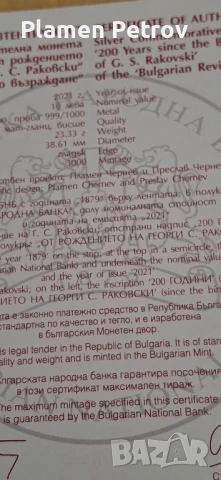 Plamen Petrov
CERTIFICATE OF AUTH
Silver Commemorative
'200 Years since the B
of G. S. Rakovski'
of the 'Bulgarian Revi
монета
рождението
С. Раковски"
Възраждане"
2021 г. Year of issue
10 лева Nominal value
проба 999/1000 Metal
мат-гланц, висше Quality
23.33 г Weight
38.61 мм Diameter
гладък Edge
3000 Mintage
проект: Пламен Чернев и Преслав Чернев
design: Plamen Chernev and Preslav Chernev
с годината „1879" върху лентата; в полу
НАРОДНА БАНКА", долу номиналната стойност
и годината на емисията „2021"
на Г. С. Раковски; отстрани надпис „200
"ОТ РОЖДЕНИЕТО НА ГЕОРГИ С. РАКОВСКИ"
year '1879' on the strap, at the top in a semicircle
National Bank and underneath the nominal value
and the year of issue '2021'
Rakovski; on the left, the inscription '200 ГОДИНИ
НА ГЕОРГИ С. РАКОВСКИ' (since the birt
е законно платежно средство в Република Бълга
стандартна по качество и тегло, и е изработена
в българския Монетен двор.
is legal tender in the Republic of Bulgaria. It is of stan
quality and weight and is minted in the Bulgarian Mint.
българската народна банка гарантира посочения
в този сертификат максимален тираж.
The maximum mintage specified in this certificate
is guaranteed by the Bulgarian National Bank.
bazar